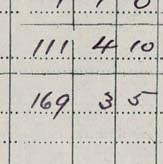 111 4 10
169 3 5